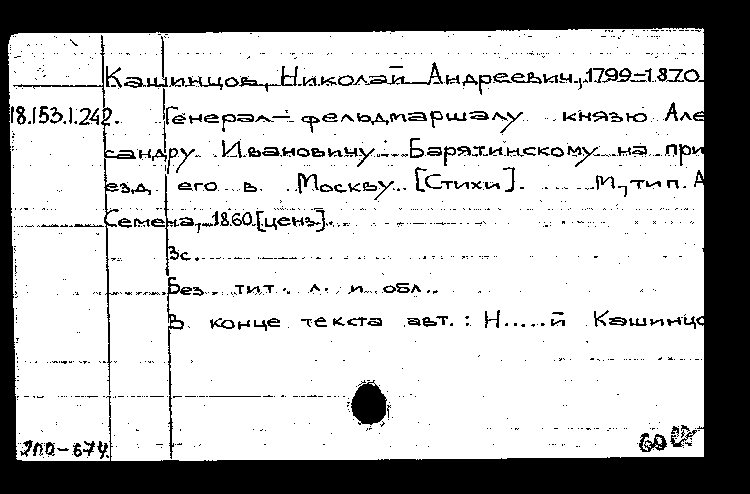 Кашинцов, Николай Андреевич, 1799-1870
18.153.1.242. Генерал-фельдмаршалу князю Але
сандру Ивановичу Барятинскому на при
езд его в Москву. [Стихи]. М, тип. А
Семена, 1860 [ценз].
3с.
Без тит. л. и обл..
В конце текста авт.: Н.....й Кашинцо
2по-674
60